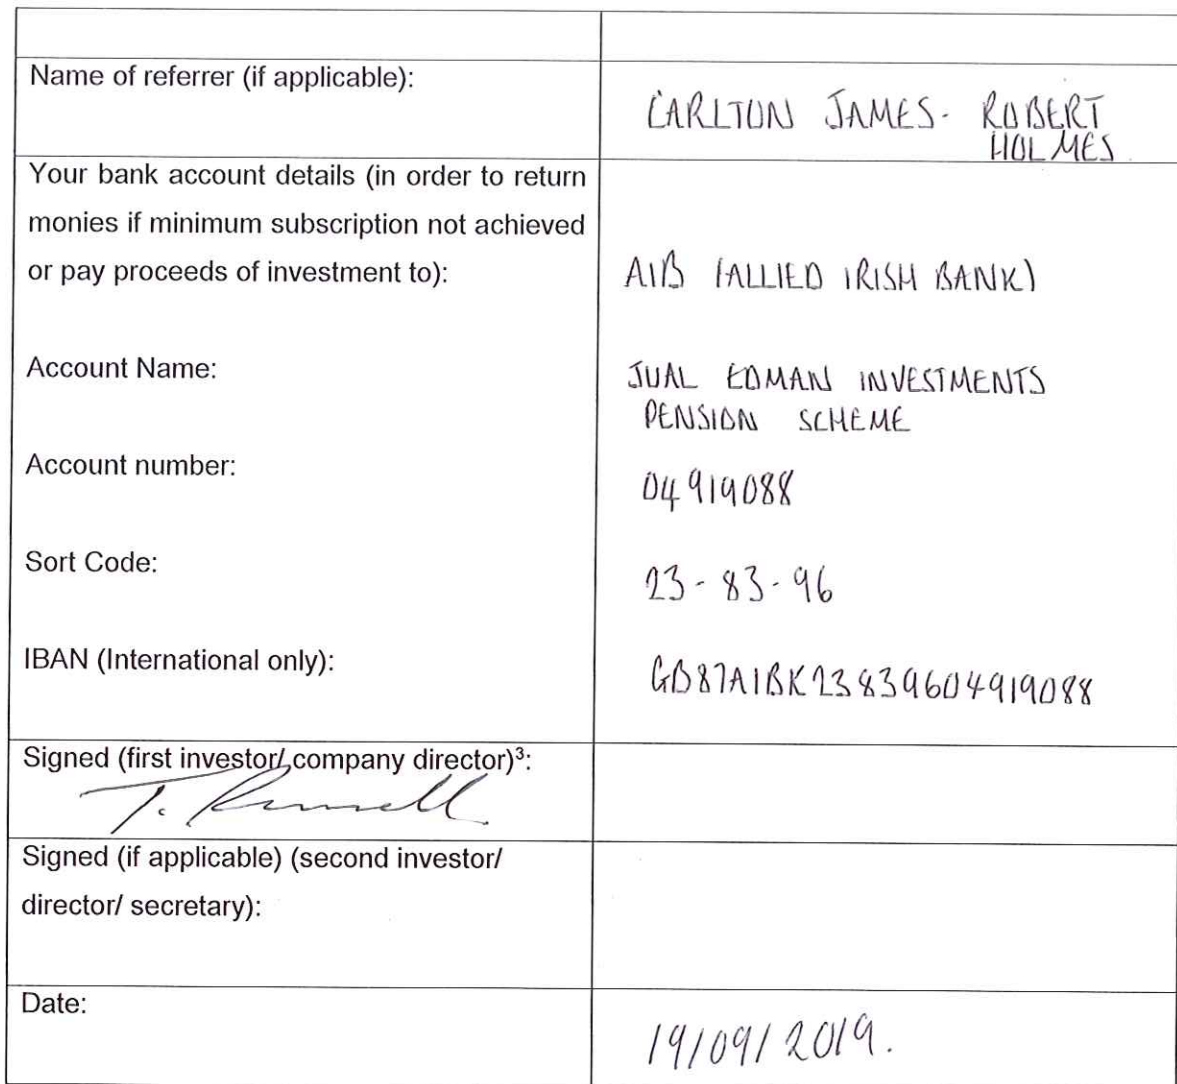 Name of referrer (if applicable):
CARLTON JAMES - ROBERT
HOLMES
Your bank account details (in order to return
monies if minimum subscription not achieved
or pay proceeds of investment to):
AIB (ALLIED IRISH BANK)
Account Name:
JUAL EDMAN INVESTMENTS
PENSION SCHEME
Account number:
04919088
Sort Code:
23-83-96
IBAN (International only):
GB87AIBK23839604919088
Signed (first investor/ company director)³:
T.
Signed (if applicable) (second investor/
director/ secretary):
Date:
19/09/2019.